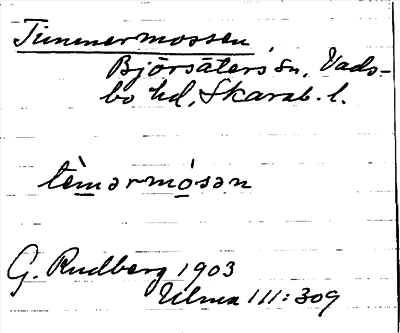 Timmermossen
Björsäters sn, Vads-
bo hd, Skarab. l.
tèmərmósən
G. Rudberg 1903
Ulma 111:309